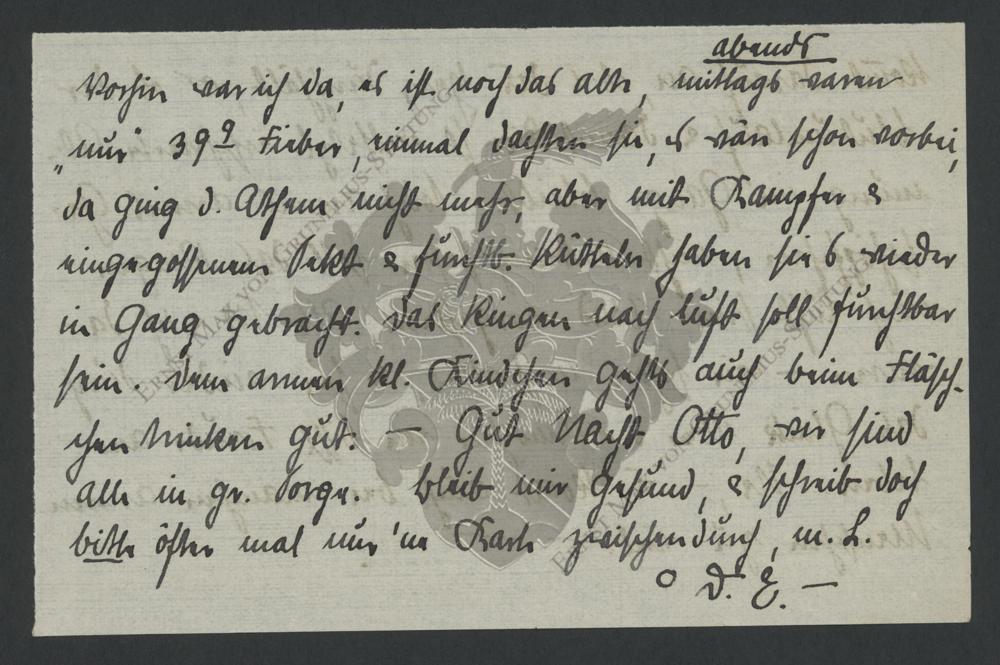 abends
Vorhin war ich da, es ist noch das alte, mittags waren
„nur“ 39⁹ Fieber, einmal dachten sie, es wär schon vorbei,
da ging d. Athem nicht mehr, aber mit Kampfer &
eingegossenem Sekt & furchtb. Rütteln haben sie es wieder
in Gang gebracht. Das Ringen nach Luft soll furchtbar
sein. Dem armen kl. Kindchen gehts auch beim Fläsch-
chen trinken gut. — Gut Nacht Otto, wir sind
alle in gr. Sorge. Bleib mir gesund, & schreib doch
bitte öfter mal nur 'ne Karte zwischendurch, m. L.
D. E. —
ERNST MAX VON GRUNELIUS-STIFTUNG